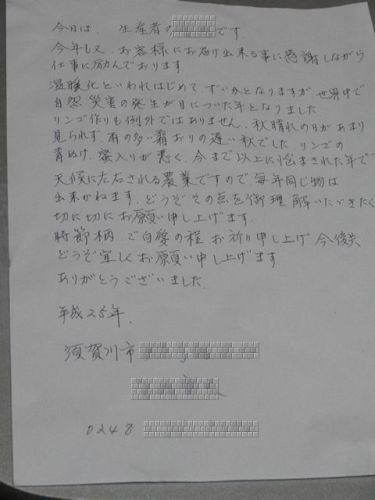 今日は、 生産者の です
今年も又、お客様にお届け出来る事に感謝しながら
仕事に励んでおります
温暖化といわれはじめて、ずいぶんとなりますが世界中で
自然災害の発生が目についた年となりました
リンゴ作りも例外ではありません。秋晴れの日があまり
見られず、雨の多い霜おりの遅い秋でした リンゴの
青ぬけ、蜜入りが悪く、今まで以上に悩まされた年で
天候に左右される農業ですので、毎年同じ物は
出来かねます、どうぞその点を御理解いただきたく
切に切にお願い申し上げます。
時節柄 ご自愛の程 お祈り申し上げ 今後共
どうぞ宜しくお願い申し上げます
ありがとうございました。
平成25年、
須賀川市
0248